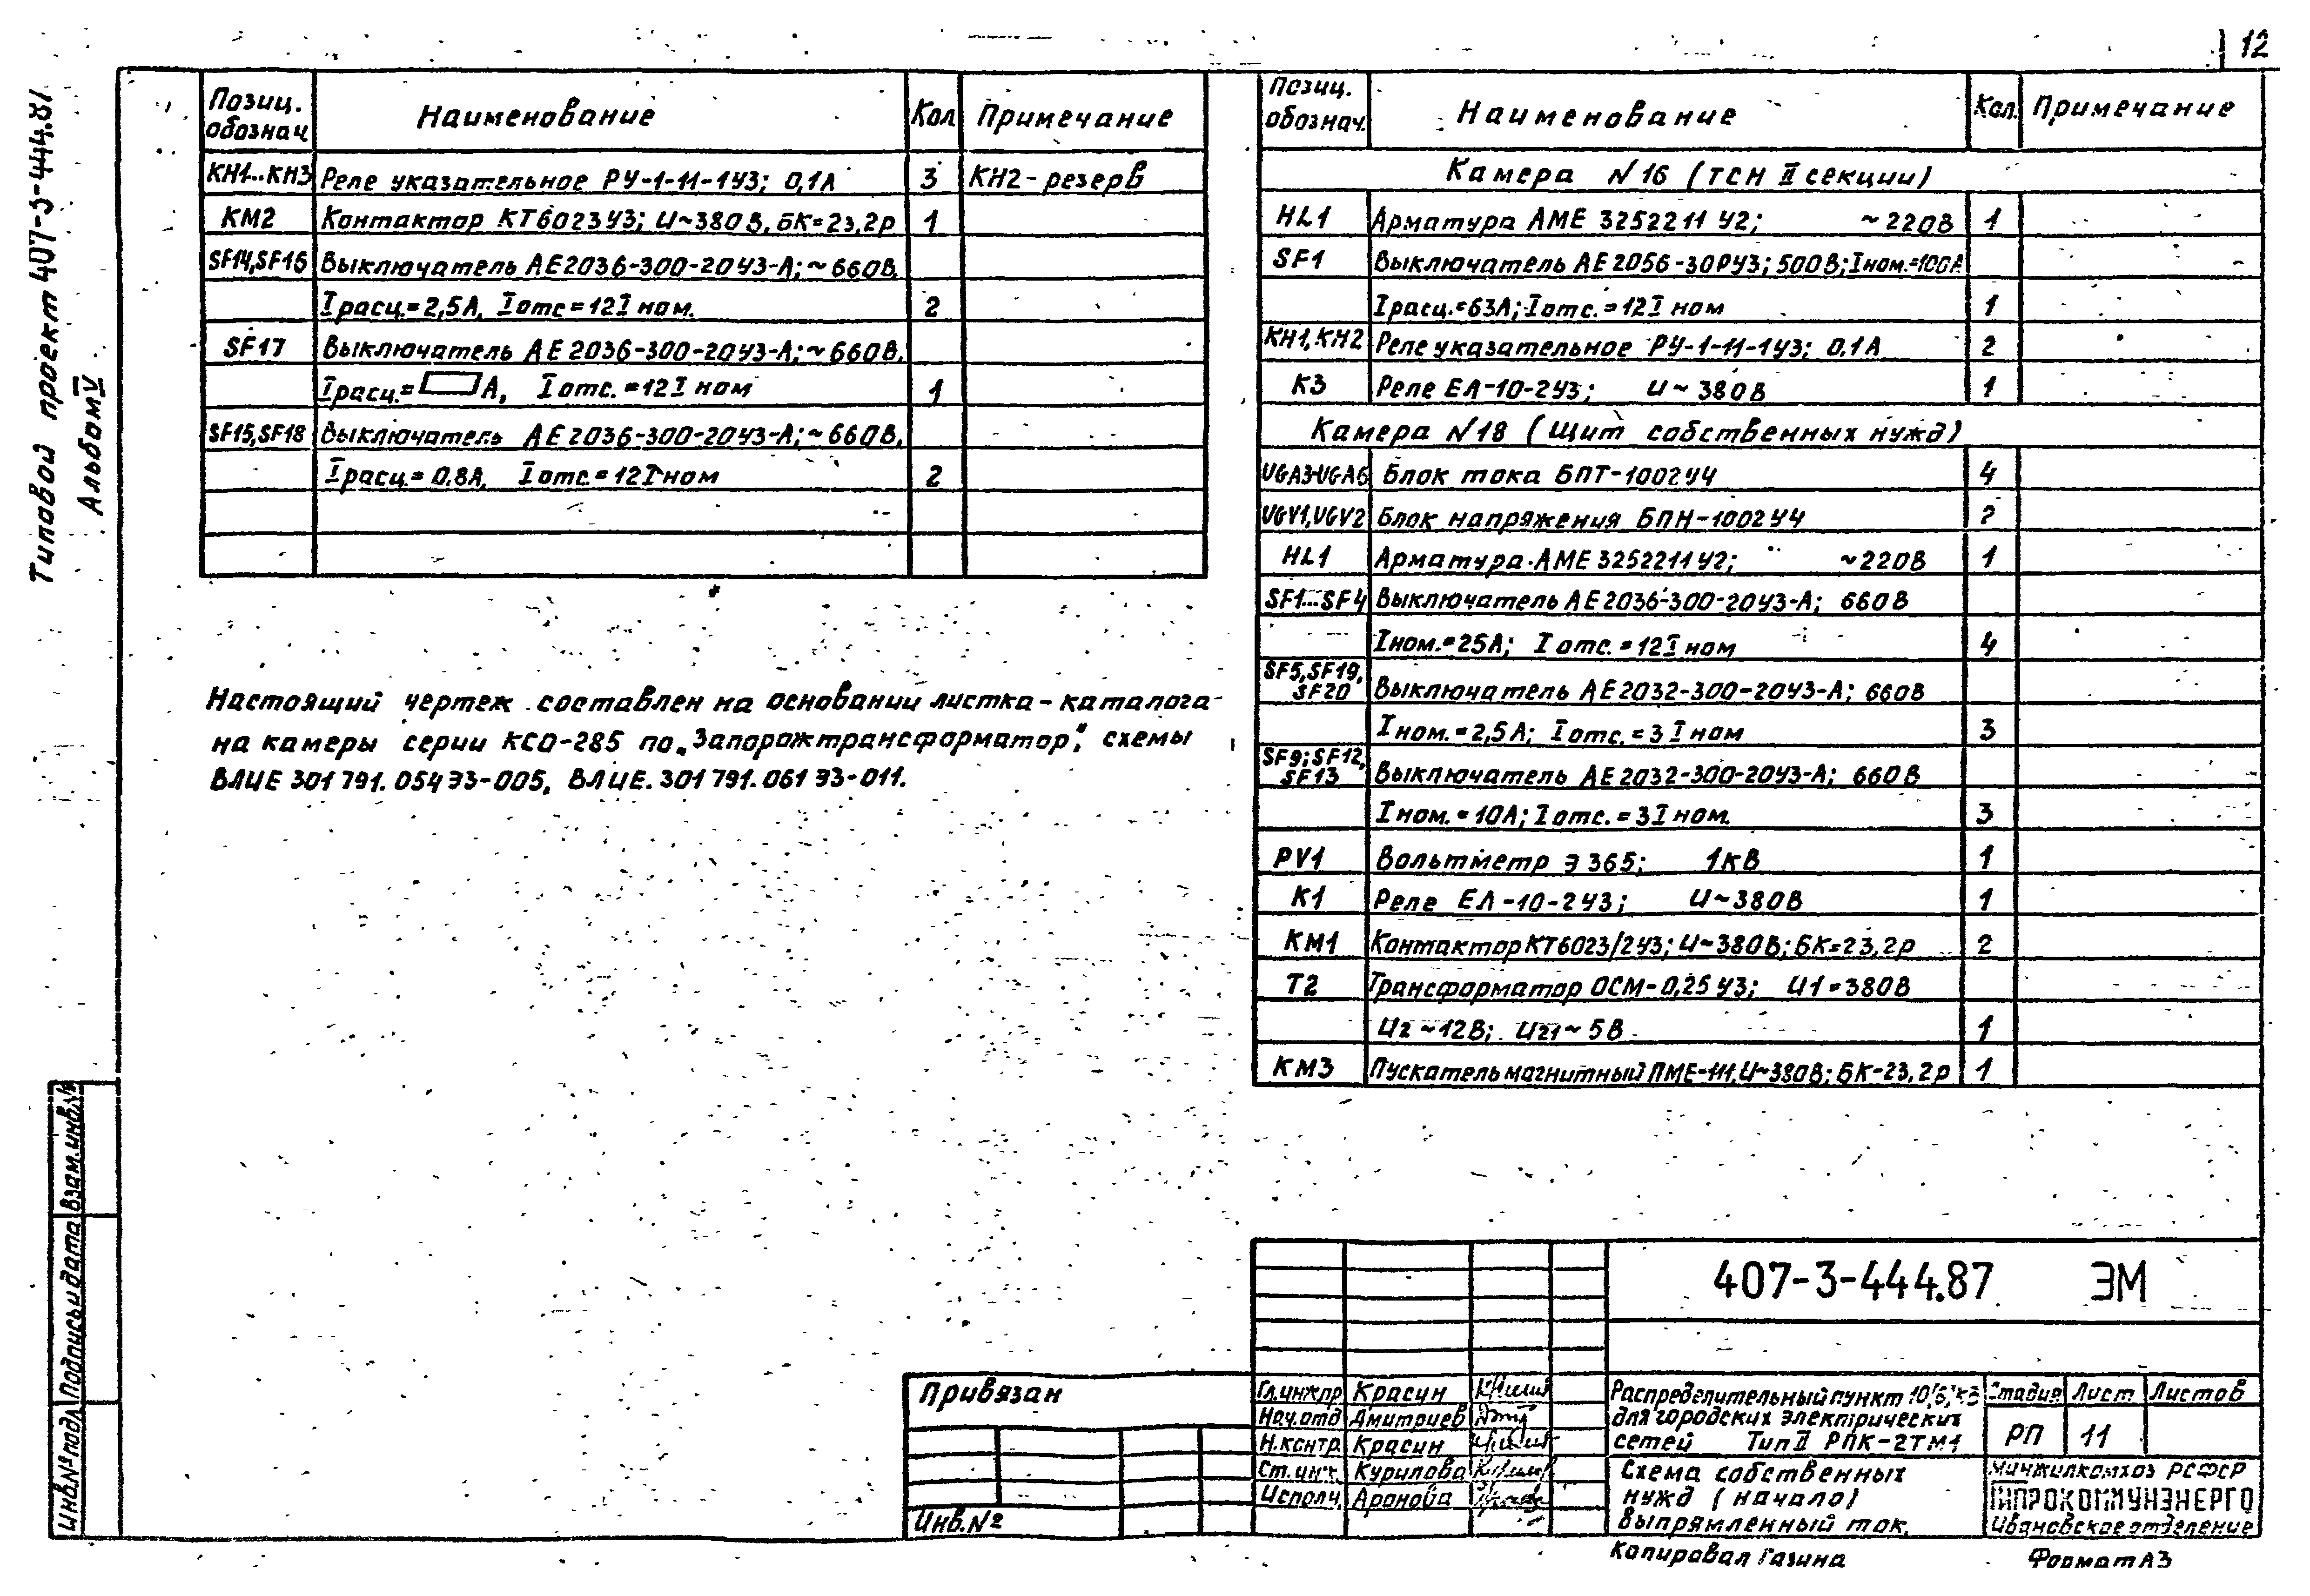 12
Типовой проект 407-3-444.87
Альбом IV
Позиц. обознач. Наименование Кол. Примечание
КН1...КН3 Реле указательное РУ-1-11-1У3; 0,1А 3 КН2-резерв
КМ2 Контактор КТ6023У3; U~380В, БК=23,2р 1
SF14,SF16 Выключатель АЕ2036-300-20У3-А; ~660В,
Iрасц.=2,5А, Iотс=12Iном. 2
SF17 Выключатель АЕ2036-300-20У3-А; ~660В,
Iрасц.= А, Iотс.=12Iном 1
SF15,SF18 Выключатель АЕ2036-300-20У3-А; ~660В,
Iрасц.=0,8А, Iотс.=12Iном 2
Настоящий чертеж составлен на основании листка-каталога
на камеры серии КСО-285 по „Запорожтрансформатор", схемы
ВЛИЕ 301 791. 054 Э3-005, ВЛИЕ. 301 791. 061 Э3-011.
Позиц. обознач. Наименование Кол. Примечание
Камера N16 (ТСН II секции)
HL1 Арматура АМЕ 3252211 У2; ~220В 1
SF1 Выключатель АЕ2056-30РУ3; 500В; Iном.=100А
Iрасц.=63А; Iотс.=12Iном 1
КН1, КН2 Реле указательное РУ-1-11-1У3; 0,1А 2
К3 Реле ЕЛ-10-2У3; U~380В 1
Камера N18 (Щит собственных нужд)
UGA3-UGA6 Блок тока БПТ-1002У4 4
UGV1,UGV2 Блок напряжения БПН-1002У4 2
HL1 Арматура АМЕ 3252211У2; ~220В 1
SF1...SF4 Выключатель АЕ2036-300-20У3-А; 660В
Iном.=25А; Iотс.=12Iном 4
SF5,SF19, SF20 Выключатель АЕ2032-300-20У3-А; 660В
Iном.=2,5А; Iотс.=3Iном 3
SF9; SF12, SF13 Выключатель АЕ2032-300-20У3-А; 660В
Iном.=10А; Iотс.=3Iном. 3
PV1 Вольтметр Э365; 1кВ 1
К1 Реле ЕЛ-10-2У3; U~380В 1
КМ1 Контактор КТ6023/2У3; U~380В; БК=23,2р 2
Т2 Трансформатор ОСМ-0,25У3; U1=380В
U2~12В; U21~5В 1
КМ3 Пускатель магнитный ПМЕ-111, U~380В; БК-23,2р 1
Взам.инв.№
Подпись и дата
Инв.№ подл
407-3-444.87 ЭМ
Привязан
Инв.№
Гл.инж.пр. Красин
Нач.отд Дмитриев
Н.контр. Красин
Ст.инж. Курилова
Исполн. Аронова
Распределительный пункт 10(6)кВ
для городских электрических
сетей Тип II РПК-2ТМ1
Стадия Лист Листов
РП 11
Схема собственных
нужд (начало)
выпрямленный ток.
Минжилкомхоз РСФСР
ГИПРОКОММУНЭНЕРГО
Ивановское отделение
Копировал Газина
Формат А3